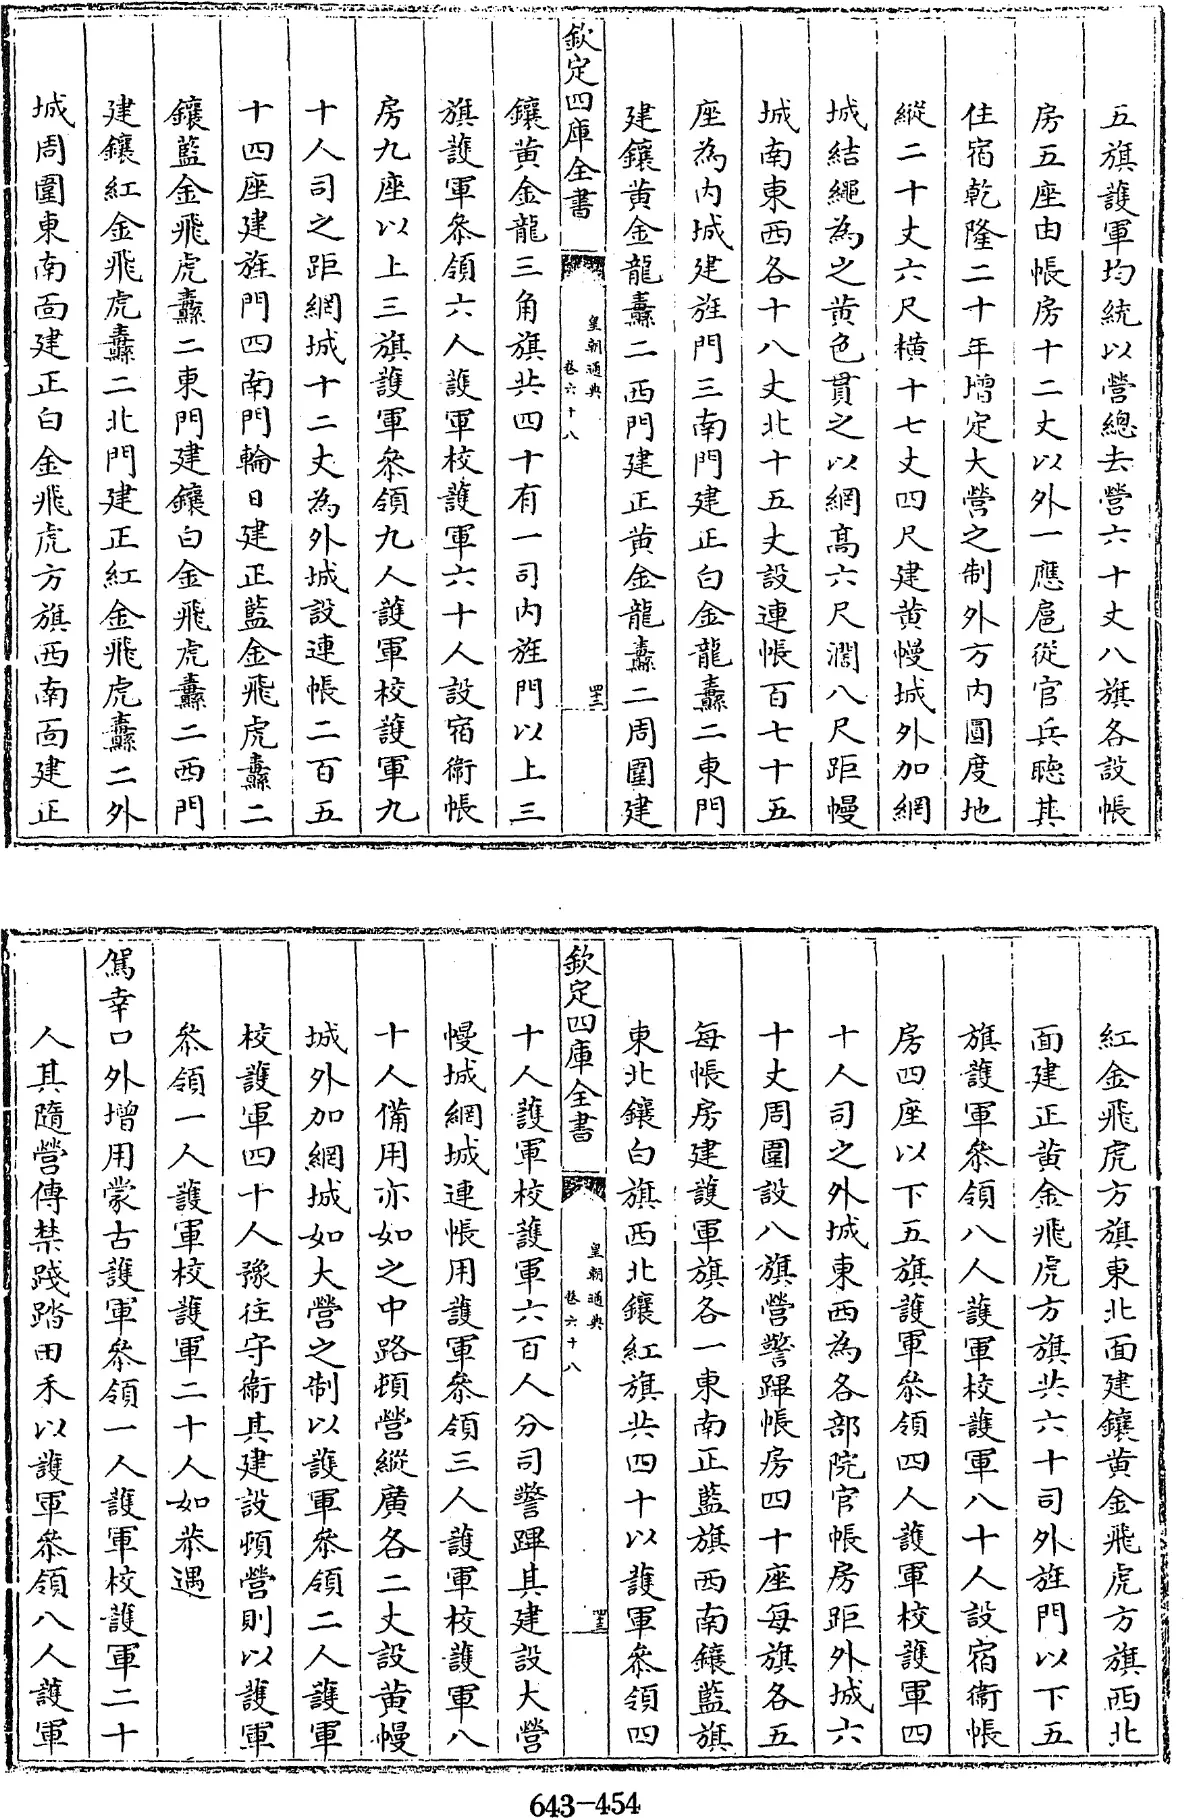 五旗護軍均統以營總去營六十丈八旗各設帳
房五座由帳房十二丈以外一應扈從官兵聴其
住宿乾隆二十年増定大營之制外方内圓度地
縱二十丈六尺橫十七丈四尺建黄幔城外加網
城結繩為之黄色貫之以網髙六尺濶八尺距幔
城南東西各十八丈北十五丈設連帳百七十五
座為内城建旌門三南門建正白金龍纛二東門
建鑲黄金龍纛二西門建正黄金龍纛二周圍建
欽定四庫全書
皇朝通典
卷六十八
四十三
鑲黄金龍三角旗共四十有一司内旌門以上三
旗護軍叅領六人護軍校護軍六十人設宿衛帳
房九座以上三旗護軍叅領九人護軍校護軍九
十人司之距網城十二丈為外城設連帳二百五
十四座建旌門四南門輪日建正藍金飛虎纛二
鑲藍金飛虎纛二東門建鑲白金飛虎纛二西門
建鑲紅金飛虎纛二北門建正紅金飛虎纛二外
城周圍東南面建正白金飛虎方旗西南面建正
紅金飛虎方旗東北面建鑲黄金飛虎方旗西北
面建正黄金飛虎方旗共六十司外旌門以下五
旗護軍叅領八人護軍校護軍八十人設宿衛帳
房四座以下五旗護軍叅領四人護軍校護軍四
十人司之外城東西為各部院官帳房距外城六
十丈周圍設八旗營警蹕帳房四十座每旗各五
每帳房建護軍旗各一東南正藍旗西南鑲藍旗
東北鑲白旗西北鑲紅旗共四十以護軍叅領四
欽定四庫全書
皇朝通典
卷六十八
十人護軍校護軍六百人分司警蹕其建設大營
幔城網城連帳用護軍叅領三人護軍校護軍八
十人備用亦如之中路頓營縱廣各二丈設黄幔
城外加網城如大營之制以護軍叅領二人護軍
校護軍四十人豫往守衛其建設頓營則以護軍
叅領一人護軍校護軍二十人如恭遇
駕幸口外增用蒙古護軍叅領一人護軍校護軍二十
人其隨營傳禁踐踏田禾以護軍叅領八人護軍
643-454